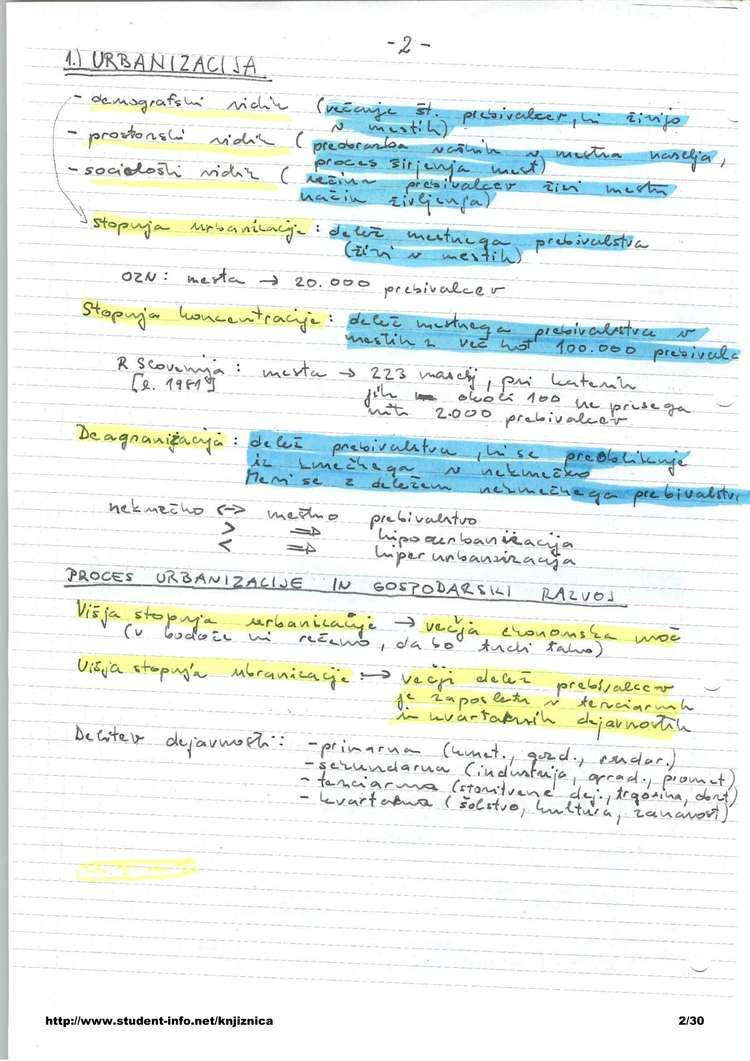 - 2 -
1.) URBANIZACIJA
- demografski vidik (večanje št. prebivalcev, ki živijo
v mestih)
- prostorski vidik ( preobrazba vaških v mestna naselja,
proces širjenja mest)
- sociološki vidik ( večina prebivalcev živi mestni
način življenja)
stopnja urbanizacije : delež mestnega prebivalstva
(živi v mestih)
OZN : mesta → 20.000 prebivalcev
Stopnja koncentracije : delež mestnega prebivalstva v
mestih z več kot 100.000 prebivalc
R Slovenija : mesta → 223 naselij, pri katerih
[l. 1981] jih okoli 100 ne presega
niti 2.000 prebivalcev
Deagrarizacija : delež prebivalstva, ki se preoblikuje
iz kmečkega v nekmečko
Meri se z deležem nekmečnega prebivalstv
nekmečko <-> mestno prebivalstvo
> ⇒ hipourbanizacija
< ⇒ hiperurbanizacija
PROCES URBANIZACIJE IN GOSPODARSKI RAZVOJ
Višja stopnja urbanizacije → večja ekonomska moč
(v bodoče ni rečeno, da bo tudi tako)
Višja stopnja ubranizacije → večji delež prebivalcev
je zaposleth v terciarnih
in kvartarnih dejavnostih
Delitev dejavnosti: - primarna (kmet., gozd., rudar.)
- sekundarna (industrija, grad., promet)
- terciarna (storitvene dej., trgovina, obrt)
- kvartarna (šolstvo, kultura, znanost)
http://www.student-info.net/knjiznica 2/30